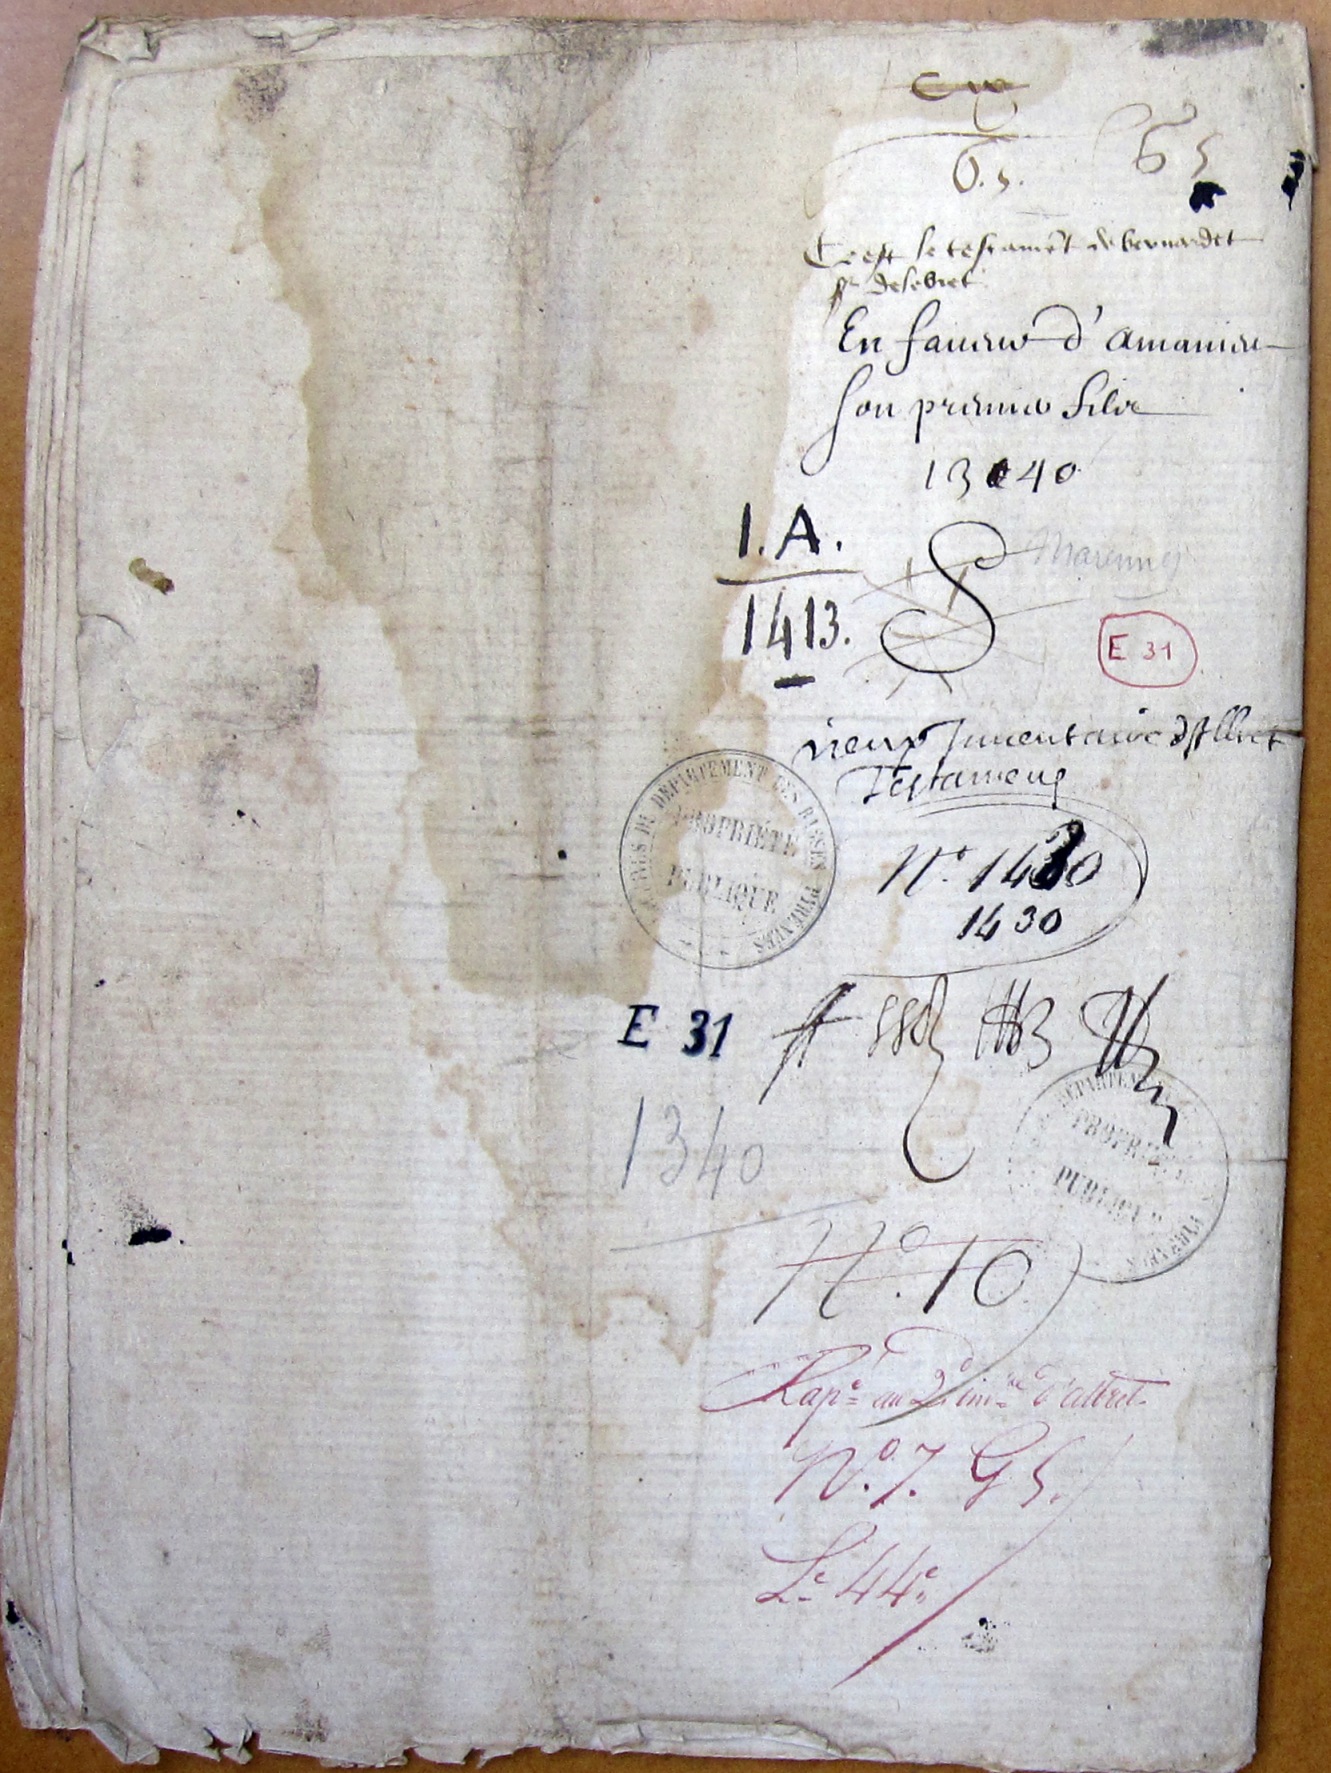 6.5.
65
C'est le testament de bernardet
sr delebret
En faueur d'Amanieu
son premier filz
13 40
I.A.
1413.
Marennes
E 31
vieux Inuentaire d'Albret
Testamens
ARCHIVES DU DÉPARTEMENT DES BASSES PYRÉNÉES
PROPRIÉTÉ
PUBLIQUE
N.° 1430
1430
E 31
1340
DÉPARTEMENT PYRÉNÉES
PROPRIÉTÉ
PUBLIQUE
N.° 10
Rap.é au 2.d inv.re d'albret
N.° 7. G 5.
L.e 44.e